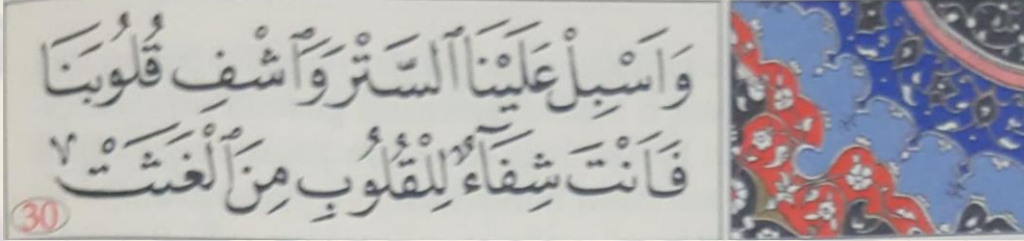 وَاَسْبِلْ عَلَيْنَا ٱلسَّتْرَ وَٱشْفِ قُلُوبَنَا
فَاَنْتَ شِفَآءٌ لِلْقُلُوبِ مِنَ ٱلْغَشَتْ ٧
30